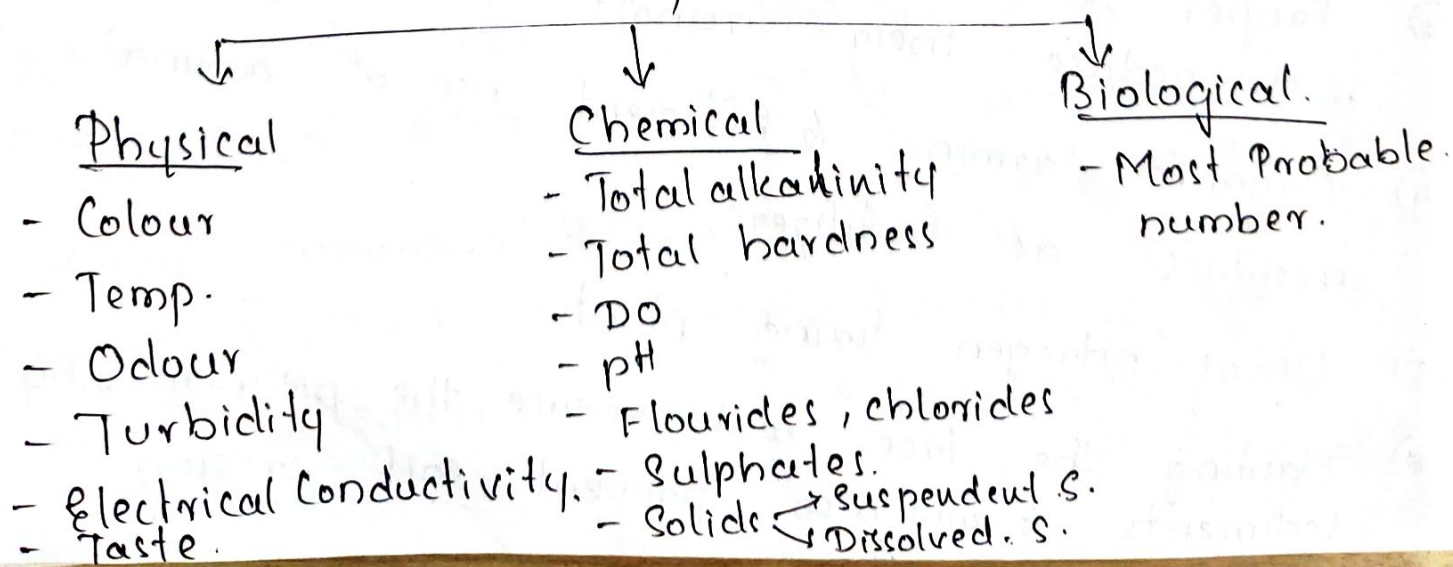 Physical
- Colour
- Temp.
- Odour
- Turbidity
- Electrical Conductivity.
- Taste.
Chemical
- Total alkalinity
- Total hardness
- DO
- pH
- Flourides, chlorides
- Sulphates.
- Solids
Suspendent S.
Dissolved. S.
Biological.
- Most Probable
number.